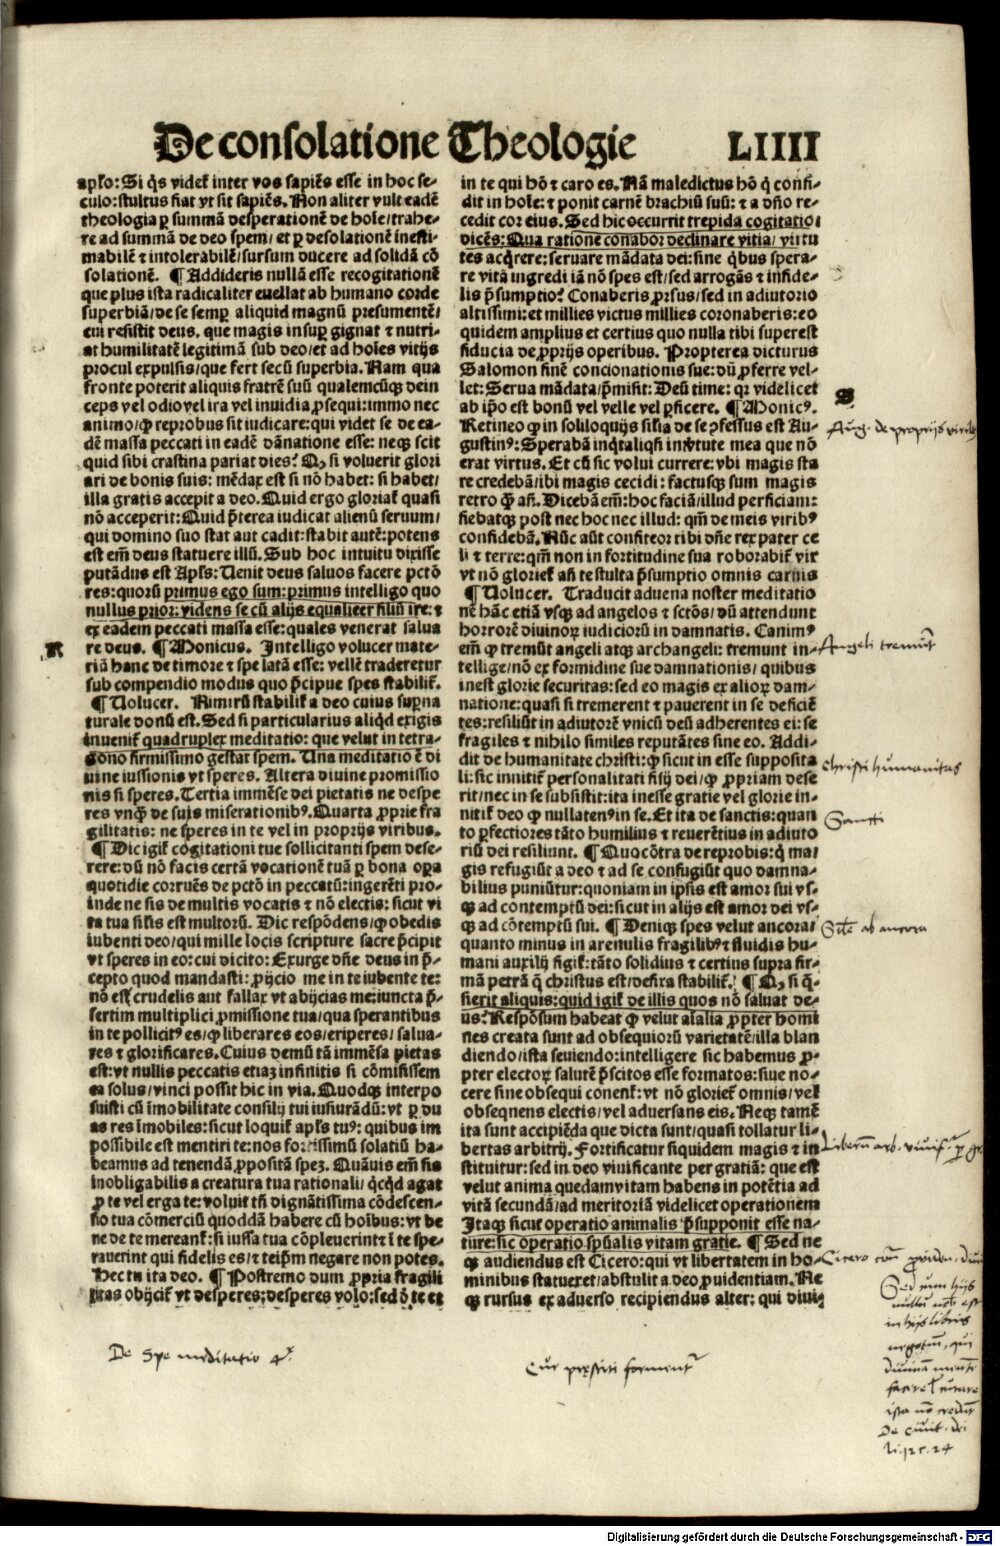 De consolatione Theologie LIIII
apło: Si q̄s videt̄ inter vos sapiēs esse in hoc se-
culo: stultus fiat vt sit sapiēs. Non aliter vult eadē
theologia ꝑ summā desperationē de hoīe/ trahe-
re ad summā de deo spem/ et ꝑ desolationē inesti-
mabilē ⁊ intolerabilē/ sursum ducere ad solidā cō
solationē. ¶ Addideris nullā esse recogitationē
que plus ista radicaliter euellat ab humano corde
superbiā/ de se semꝑ aliquid magnū presumentē/
cui resistit deus. que magis insuꝑ gignat ⁊ nutri-
at humilitatē legitimā sub deo/ et ad hoīes vitijs
procul expulsis/ que fert secū superbia. Nam qua
fronte poterit aliquis fratrē suū qualemcūqꝫ dein
ceps vel odio vel ira vel inuidia ꝓsequi: immo nec
animo/ ꝙ reprobus sit iudicare: qui videt se de ea-
dē massa peccati in eadē dānatione esse: neqꝫ scit
quid sibi crastina pariat dies? Qꝫ si voluerit glori
ari de bonis suis: mēdax est si nō habet: si habet/
illa gratis accepit a deo. Quid ergo gloriat̄ quasi
nō acceperit: Quid p̄terea iudicat alienū seruum/
qui domino suo stat aut cadit: stabit autē: potens
est em̄ deus statuere illū. Sub hoc intuitu dixisse
putādus est Apłs: Uenit deus saluos facere pctō
res: quorū primus ego sum: primus intelligo quo
nullus prior: videns se cū alijs equaliter filiū ire: ⁊
ex eadem peccati massa esse: quales venerat salua
re deus. ¶ Monicus. Intelligo volucer mate-
R
riā hanc de timore ⁊ spe latā esse: vellē traderetur
sub compendio modus quo p̄cipue spes stabilit̄.
¶ Uolucer. Nimirū stabilit̄ a deo cuius supꝛna
turale donū est. Sed si particularius aliqd̄ exigis
inuenit̄ quadruplex meditatio: que velut in tetra-
gono firmissimo gestat spem. Una meditatio ē di
uine iussionis vt speres. Altera diuine promissio
nis si speres. Tertia immēse dei pietatis ne despe
res vnꝙ̄ de suis miserationibꝰ. Quarta ꝓprie fra
gilitatis: ne speres in te vel in proprijs viribus.
¶ Dic igit̄ cogitationi tue sollicitanti spem dese-
rere: dū nō facis certā vocationē tuā ꝑ bona oꝑa
quotidie corruēs de pctō in peccatū: ingerēti pro-
inde ne sis de multis vocatis ⁊ nō electis: sicut vi
ta tua silis est multorū. Dic respōdens/ ꝙ obedis
iubenti deo/ qui mille locis scripture sacre p̄cipit
vt speres in eo: cui dicito: Exurge dn̄e deus in p̄-
cepto quod mandasti: ꝓijcio me in te iubente te:
nō es crudelis aut fallax vt abijcias me: iuncta p̄-
sertim multiplici ꝓmissione tua/ qua sperantibus
in te pollicitꝰ es/ ꝙ liberares eos/ eriperes/ salua-
res ⁊ glorificares. Cuius demū tā immēsa pietas
est: vt nullis peccatis etiaꝫ infinitis si cōmisissem
ea solus/ vinci possit hic in via. Quodqꝫ interpo
suisti cū īmobilitate consilij tui iusiurādū: vt ꝑ du
as res īmobiles: sicut loquit̄ apłs tuꝰ: quibus im
possibile est mentiri te: nos fortissimū solatiū ha-
beamus ad tenendā ꝓpositā speꝫ. Quāuis em̄ sis
inobligabilis a creatura tua rationali/ qͥcqd̄ agat
ꝓ te vel erga te: voluit tn̄ dignātissima cōdescen-
sio tua cōmerciū quoddā habere cū hoībus: vt be
ne de te mereant̄: si iussa tua cōpleuerint ⁊ ī te spe-
rauerint qui fidelis es/ ⁊ teipm̄ negare non potes.
Hec tu ita deo. ¶ Postremo dum ꝓpria fragili
tas obijcit̄ vt desperes: desperes volo: sed ō te et
in te qui hō ⁊ caro es. Nā maledictus hō q̄ confi-
dit in hoīe: ⁊ ponit carnē brachiū suū: ⁊ a dn̄o re-
cedit cor eius. Sed hic occurrit trepida cogitatio
dicēs: Qua ratione conabor declinare vitia/ virtu
tes acq̄rere: seruare mādata dei: sine q̄bus spera-
re vitā ingredi iā nō spes est/ sed arrogās ⁊ infide-
lis p̄sumptio? Conaberis ꝓrsus/ sed in adiutorio
altissimi: et millies victus millies coronaberis: eo
quidem amplius et certius quo nulla tibi superest
fiducia de ꝓprijs operibus. Propterea dicturus
Salomon finē concionationis sue: dū ꝓferre vel-
let: Serua mādata/ p̄misit: Deū time: qꝛ videlicet
S
ab ip̄o est bonū vel velle vel ꝑficere. ¶ Monicꝰ.
Retineo ꝙ in soliloquijs silia de se ꝓfessus est Au-
gustinꝰ: Sperabā inq̄t aliqn̄ in virtute mea que nō
erat virtus. Et cū sic volui currere: vbi magis sta
re credebā/ ibi magis cecidi: factusqꝫ sum magis
retro ꝙ̄ añ. Dicebā em̄: hoc faciā/ illud perficiam:
fiebatqꝫ post nec hoc nec illud: qm̄ de meis viribꝰ
confidebā. Nūc aūt confiteor tibi dn̄e rex pater ce
li ⁊ terre: qm̄ non in fortitudine sua roborabit̄ vir
vt nō gloriet̄ añ te stulta p̄sumptio omnis carnis
¶ Uolucer. Traducit aduena noster meditatio
nē hāc etiā vsqꝫ ad angelos ⁊ sctōs/ dū attendunt
horrorē diuinoꝝ iudiciorū in damnatis. Canimꝰ
em̄ ꝙ tremūt angeli atqꝫ archangeli: tremunt in-
tellige/ nō ex formidine sue damnationis/ quibus
inest glorie securitas: sed eo magis ex alioꝝ dam-
natione: quasi si tremerent ⁊ pauerent in se deficiē
tes: resiliūt in adiutorē vnicū deū adherentes ei: se
fragiles ⁊ nihilo similes reputātes sine eo. Addi-
dit de humanitate christi: ꝙ sicut in esse supposita
li: sic innitit̄ personalitati filij dei/ ꝙ ꝓpriam dese
rit/ nec in se subsistit: ita in esse gratie vel glorie in-
nitit̄ deo ꝙ nullatenꝰ in se. Et ita de sanctis: quan
to ꝑfectiores tāto humilius ⁊ reuerētius in adiuto
riū dei resiliunt. ¶ Quo cōtra de reprobis: q̄ ma-
gis refugiūt a deo ⁊ ad se confugiūt quo damna-
bilius puniūtur: quoniam in ipsis est amor sui vs-
qꝫ ad contemptū dei: sicut in alijs est amor dei vs-
qꝫ ad cōtemptū sui. ¶ Deniqꝫ spes velut ancora/
quanto minus in arenulis fragilibꝰ ⁊ fluidis hu-
mani auxilij figit̄: tāto solidius ⁊ certius supra fir-
mā petrā q̄ christus est/ defixa stabilit̄. ¶ Qꝫ si q̄-
sierit aliquis: quid igit̄ de illis quos nō saluat de-
us? Respōsum habeat ꝙ velut aīalia ꝓpter homi
nes creata sunt ad obsequiorū varietatē/ illa blan
diendo/ ista seuiendo: intelligere sic habemus ꝓ-
pter electoꝝ salutē p̄scitos esse formatos: siue no-
cere siue obsequi conent̄: vt nō gloriet̄ omnis/ vel
obsequens electis/ vel aduersans eis. Neqꝫ tamē
ita sunt accipiēda que dicta sunt/ quasi tollatur li-
bertas arbitrij. Fortificatur siquidem magis ⁊ in
stituitur: sed in deo viuificante per gratiā: que est
velut anima quedam vitam habens in potētia ad
vitā secundā/ ad meritoriā videlicet operationem
Itaqꝫ sicut operatio animalis p̄supponit esse na-
ture: sic operatio spūalis vitam gratie. ¶ Sed ne
qꝫ audiendus est Cicero: qui vt libertatem in ho-
minibus statueret/ abstulit a deo ꝓuidentiam. Ne
qꝫ rursus ex aduerso recipiendus alter: qui diuij
Aug. de proprijs virib
Angeli tremūt
Christi humanitas
Sancti
Liberū arb. viuif.
Cicero
Sed cum hijs
in hijs libris
negotiū, qui
De Ciuit. dei
De Spe meditatio 4ˣ
Cur presciti formentur
Digitalisierung gefördert durch die Deutsche Forschungsgemeinschaft - DFG